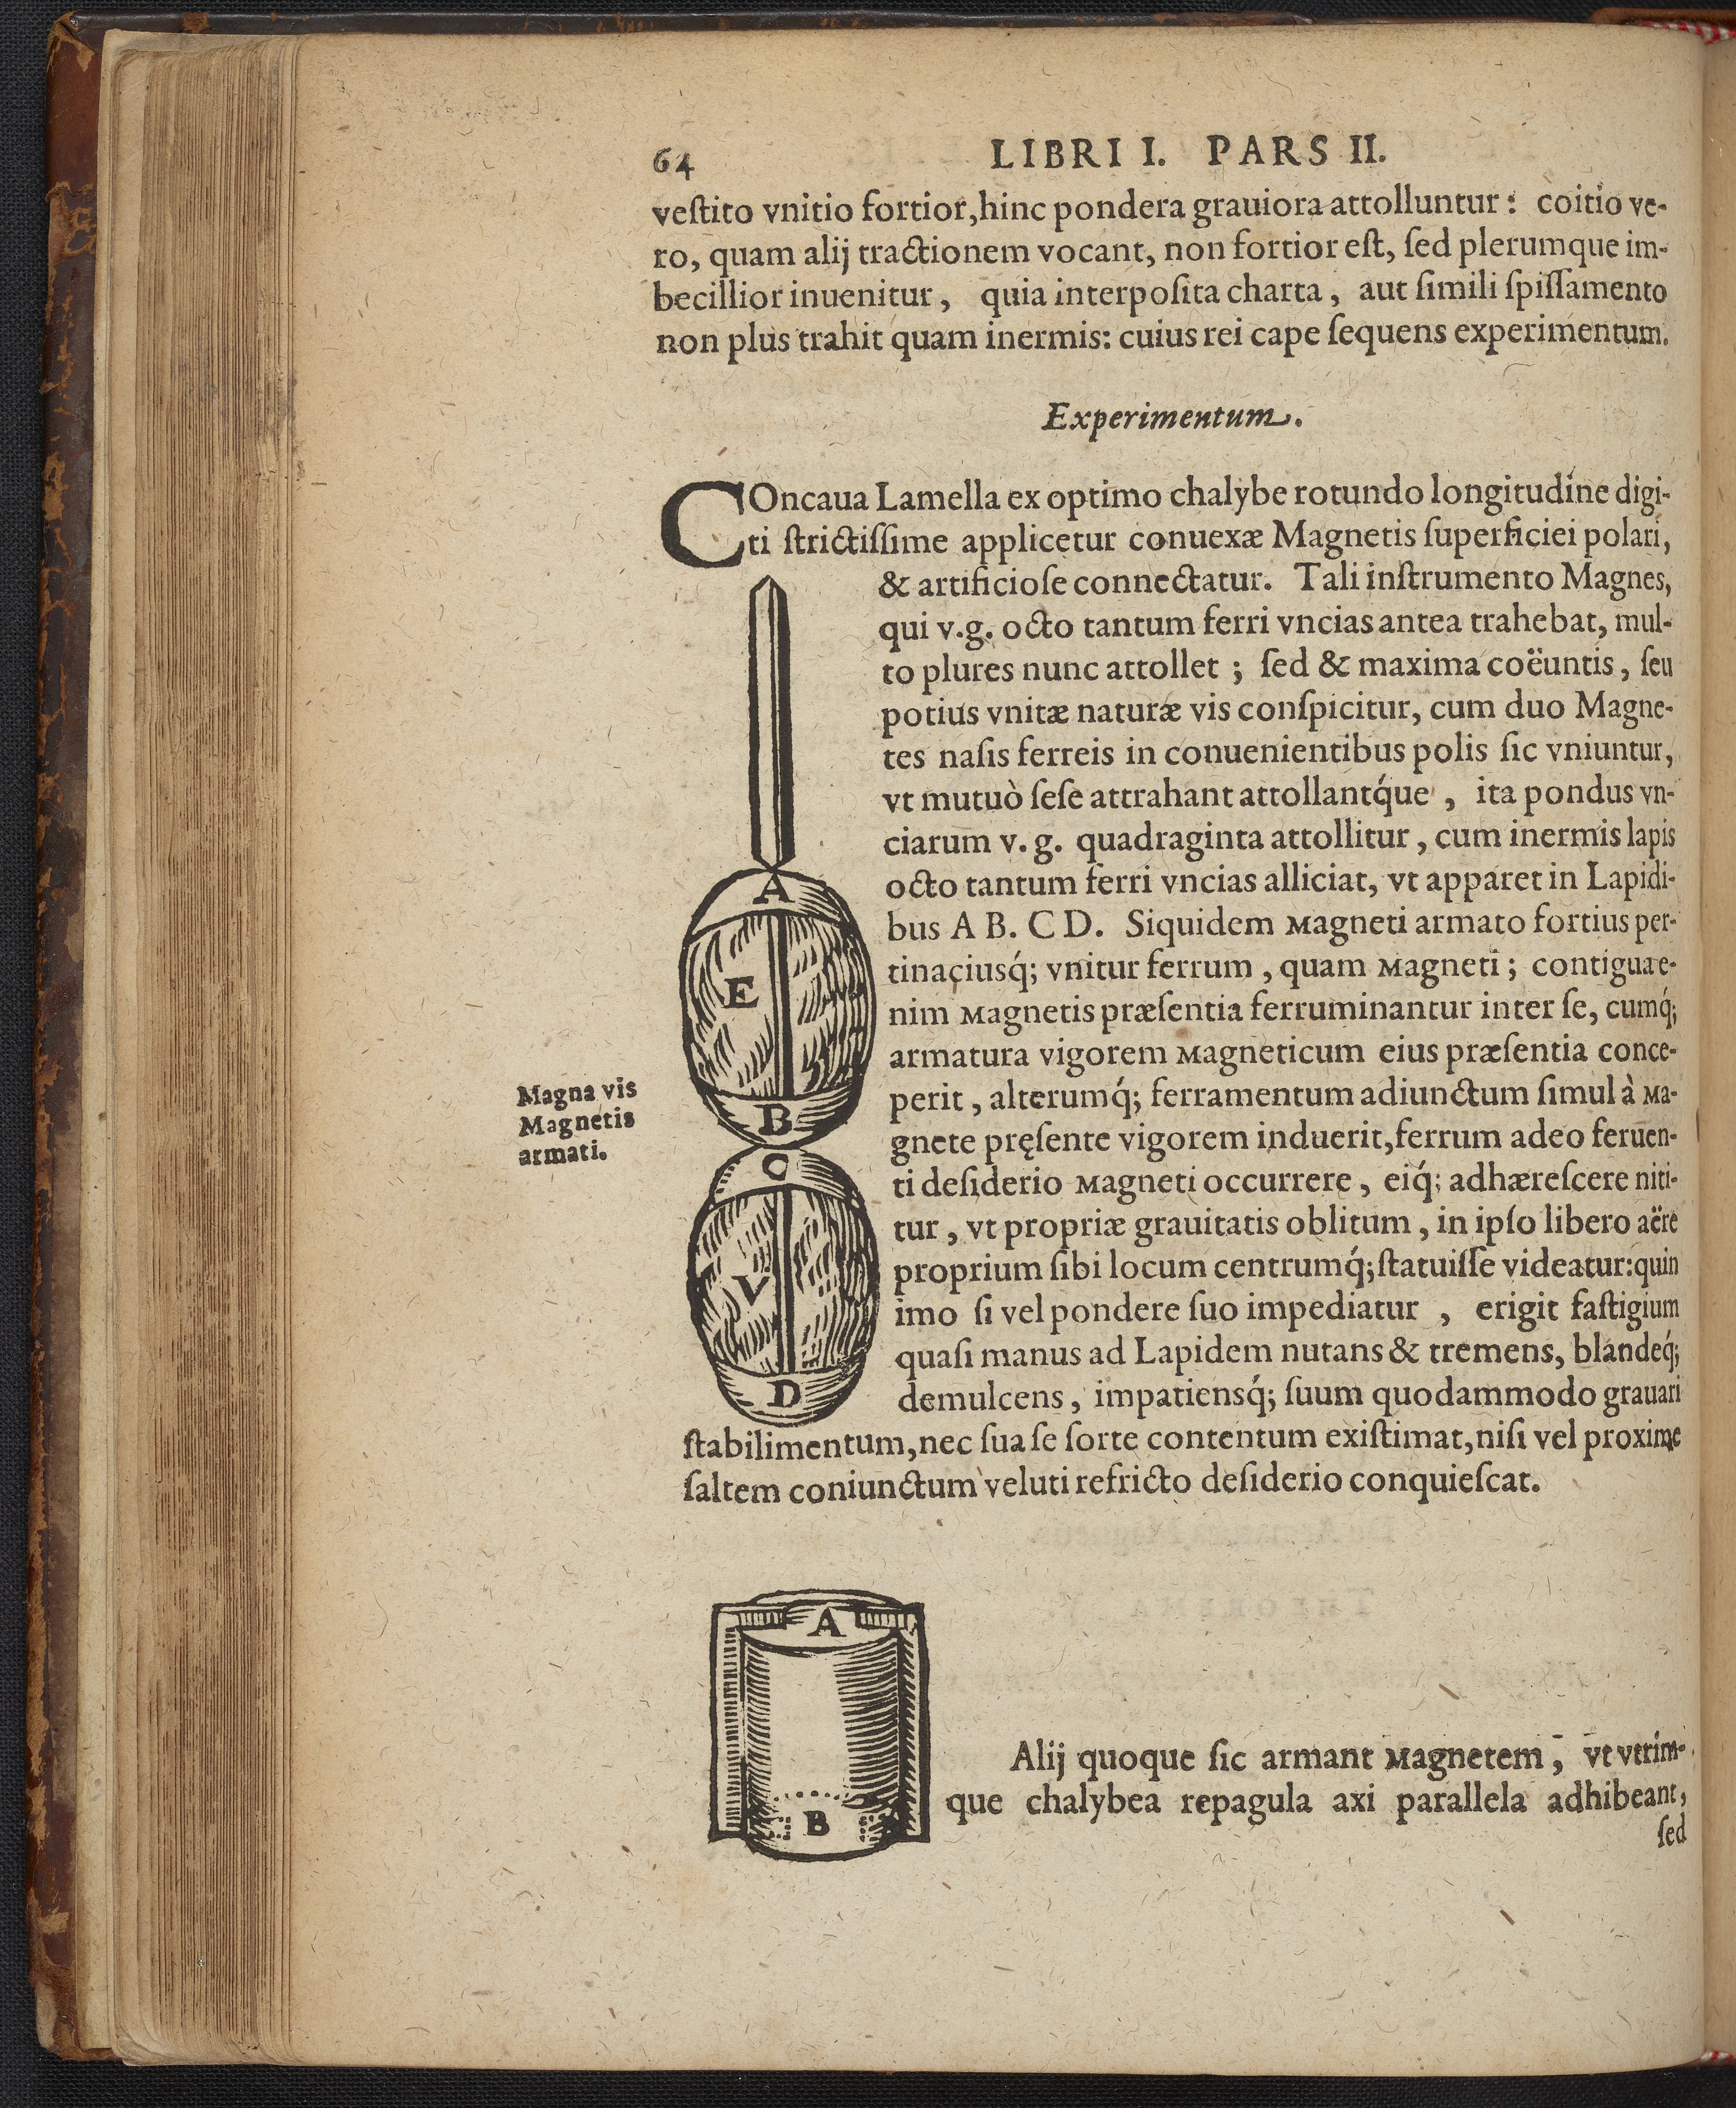 64 LIBRI I. PARS II.
veſtito vnitio fortior, hinc pondera grauiora attolluntur: coitio ve-
ro, quam alij tractionem vocant, non fortior eſt, ſed plerumque im-
becillior inuenitur, quia interpoſita charta, aut ſimili ſpiſſamento
non plus trahit quam inermis: cuius rei cape ſequens experimentum.
Experimentum.
COncaua Lamella ex optimo chalybe rotundo longitudine digi-
ti ſtrictiſſime applicetur conuexæ Magnetis ſuperficiei polari,
& artificioſe connectatur. Tali inſtrumento Magnes,
qui v.g. octo tantum ferri vncias antea trahebat, mul-
to plures nunc attollet; ſed & maxima coëuntis, ſeu
potius vnitæ naturæ vis conſpicitur, cum duo Magne-
tes naſis ferreis in conuenientibus polis ſic vniuntur,
vt mutuò ſeſe attrahant attollantq́ue, ita pondus vn-
ciarum v. g. quadraginta attollitur, cum inermis lapis
octo tantum ferri vncias alliciat, vt apparet in Lapidi-
bus A B. C D. Siquidem Magneti armato fortius per-
tinaciusq́; vnitur ferrum, quam Magneti; contigua e-
nim Magnetis præſentia ferruminantur inter ſe, cumq́;
armatura vigorem Magneticum eius præſentia conce-
perit, alterumq́; ferramentum adiunctum ſimul à Ma-
gnete pręſente vigorem induerit, ferrum adeo feruen-
ti deſiderio Magneti occurrere, eiq́; adhæreſcere niti-
tur, vt propriæ grauitatis oblitum, in ipſo libero aëre
proprium ſibi locum centrumq́; ſtatuiſſe videatur: quin
imo ſi vel pondere ſuo impediatur, erigit faſtigium
quaſi manus ad Lapidem nutans & tremens, blandeq́;
demulcens, impatiensq́; ſuum quodammodo grauari
ſtabilimentum, nec ſua ſe ſorte contentum exiſtimat, niſi vel proxime
ſaltem coniunctum veluti refricto deſiderio conquieſcat.
Magna vis
Magnetis
armati.
A
E
B
C
V
D
A
B
Alij quoque ſic armant Magnetem, vt vtrim-
que chalybea repagula axi parallela adhibeant,
ſed